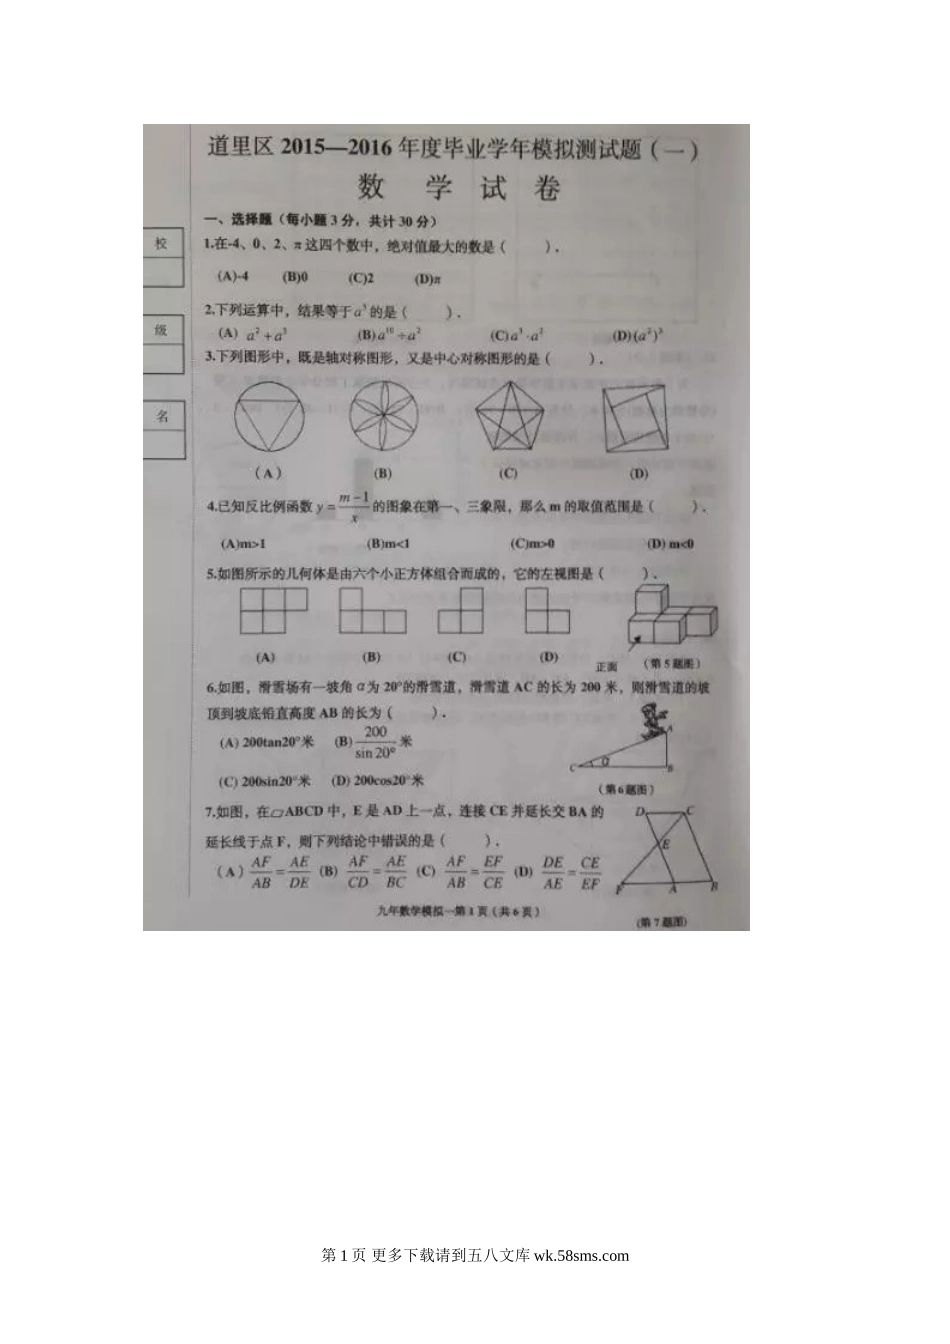 道里区 2015—2016 年度毕业学年模拟测试题(一)
数 学 试 卷
校
级
名
一、选择题(每小题 3 分,共计 30 分)
1.在-4、0、2、π 这四个数中,绝对值最大的数是( ).
(A)-4 (B)0 (C)2 (D)π
2.下列运算中,结果等于 a⁵ 的是( ).
(A) a²+a³ (B) a¹⁰÷a² (C) a³·a² (D) (a²)³
3.下列图形中,既是轴对称图形,又是中心对称图形的是( ).
(A) (B) (C) (D)
4.已知反比例函数 y=(m-1)/x 的图象在第一、三象限,那么 m 的取值范围是( ).
(A)m>1 (B)m<1 (C)m>0 (D) m<0
5.如图所示的几何体是由六个小正方体组合而成的,它的左视图是( ).
(A) (B) (C) (D) 正面 (第 5 题图)
6.如图,滑雪场有一坡角 α 为 20°的滑雪道,滑雪道 AC 的长为 200 米,则滑雪道的坡
顶到坡底铅直高度 AB 的长为( ).
(A) 200tan20°米 (B) 200/sin 20° 米
A
C α B
(C) 200sin20°米 (D) 200cos20°米
(第 6 题图)
7.如图,在▱ABCD 中,E 是 AD 上一点,连接 CE 并延长交 BA 的
延长线于点 F,则下列结论中错误的是( ).
(A) AF/AB=AE/DE (B) AF/CD=AE/BC (C) AF/AB=EF/CE (D) DE/AE=CE/EF
D C
E
F A B
九年数学模拟一第 1 页(共 6 页)
(第 7 题图)
第 1 页 更多下载请到五八文库 wk.58sms.com